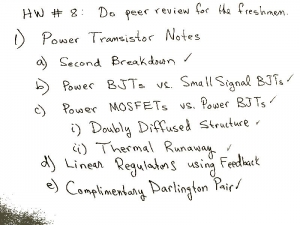 HW # 8: Do peer review for the freshmen.
1) Power Transistor Notes
a) Second Breakdown ✓
b) Power BJTs vs. Small Signal BJTs ✓
c) Power MOSFETs vs. Power BJTs ✓
i) Doubly Diffused Structure ✓
ii) Thermal Runaway ✓
d) Linear Regulators using Feedback
e) Complimentary Darlington Pair ✓